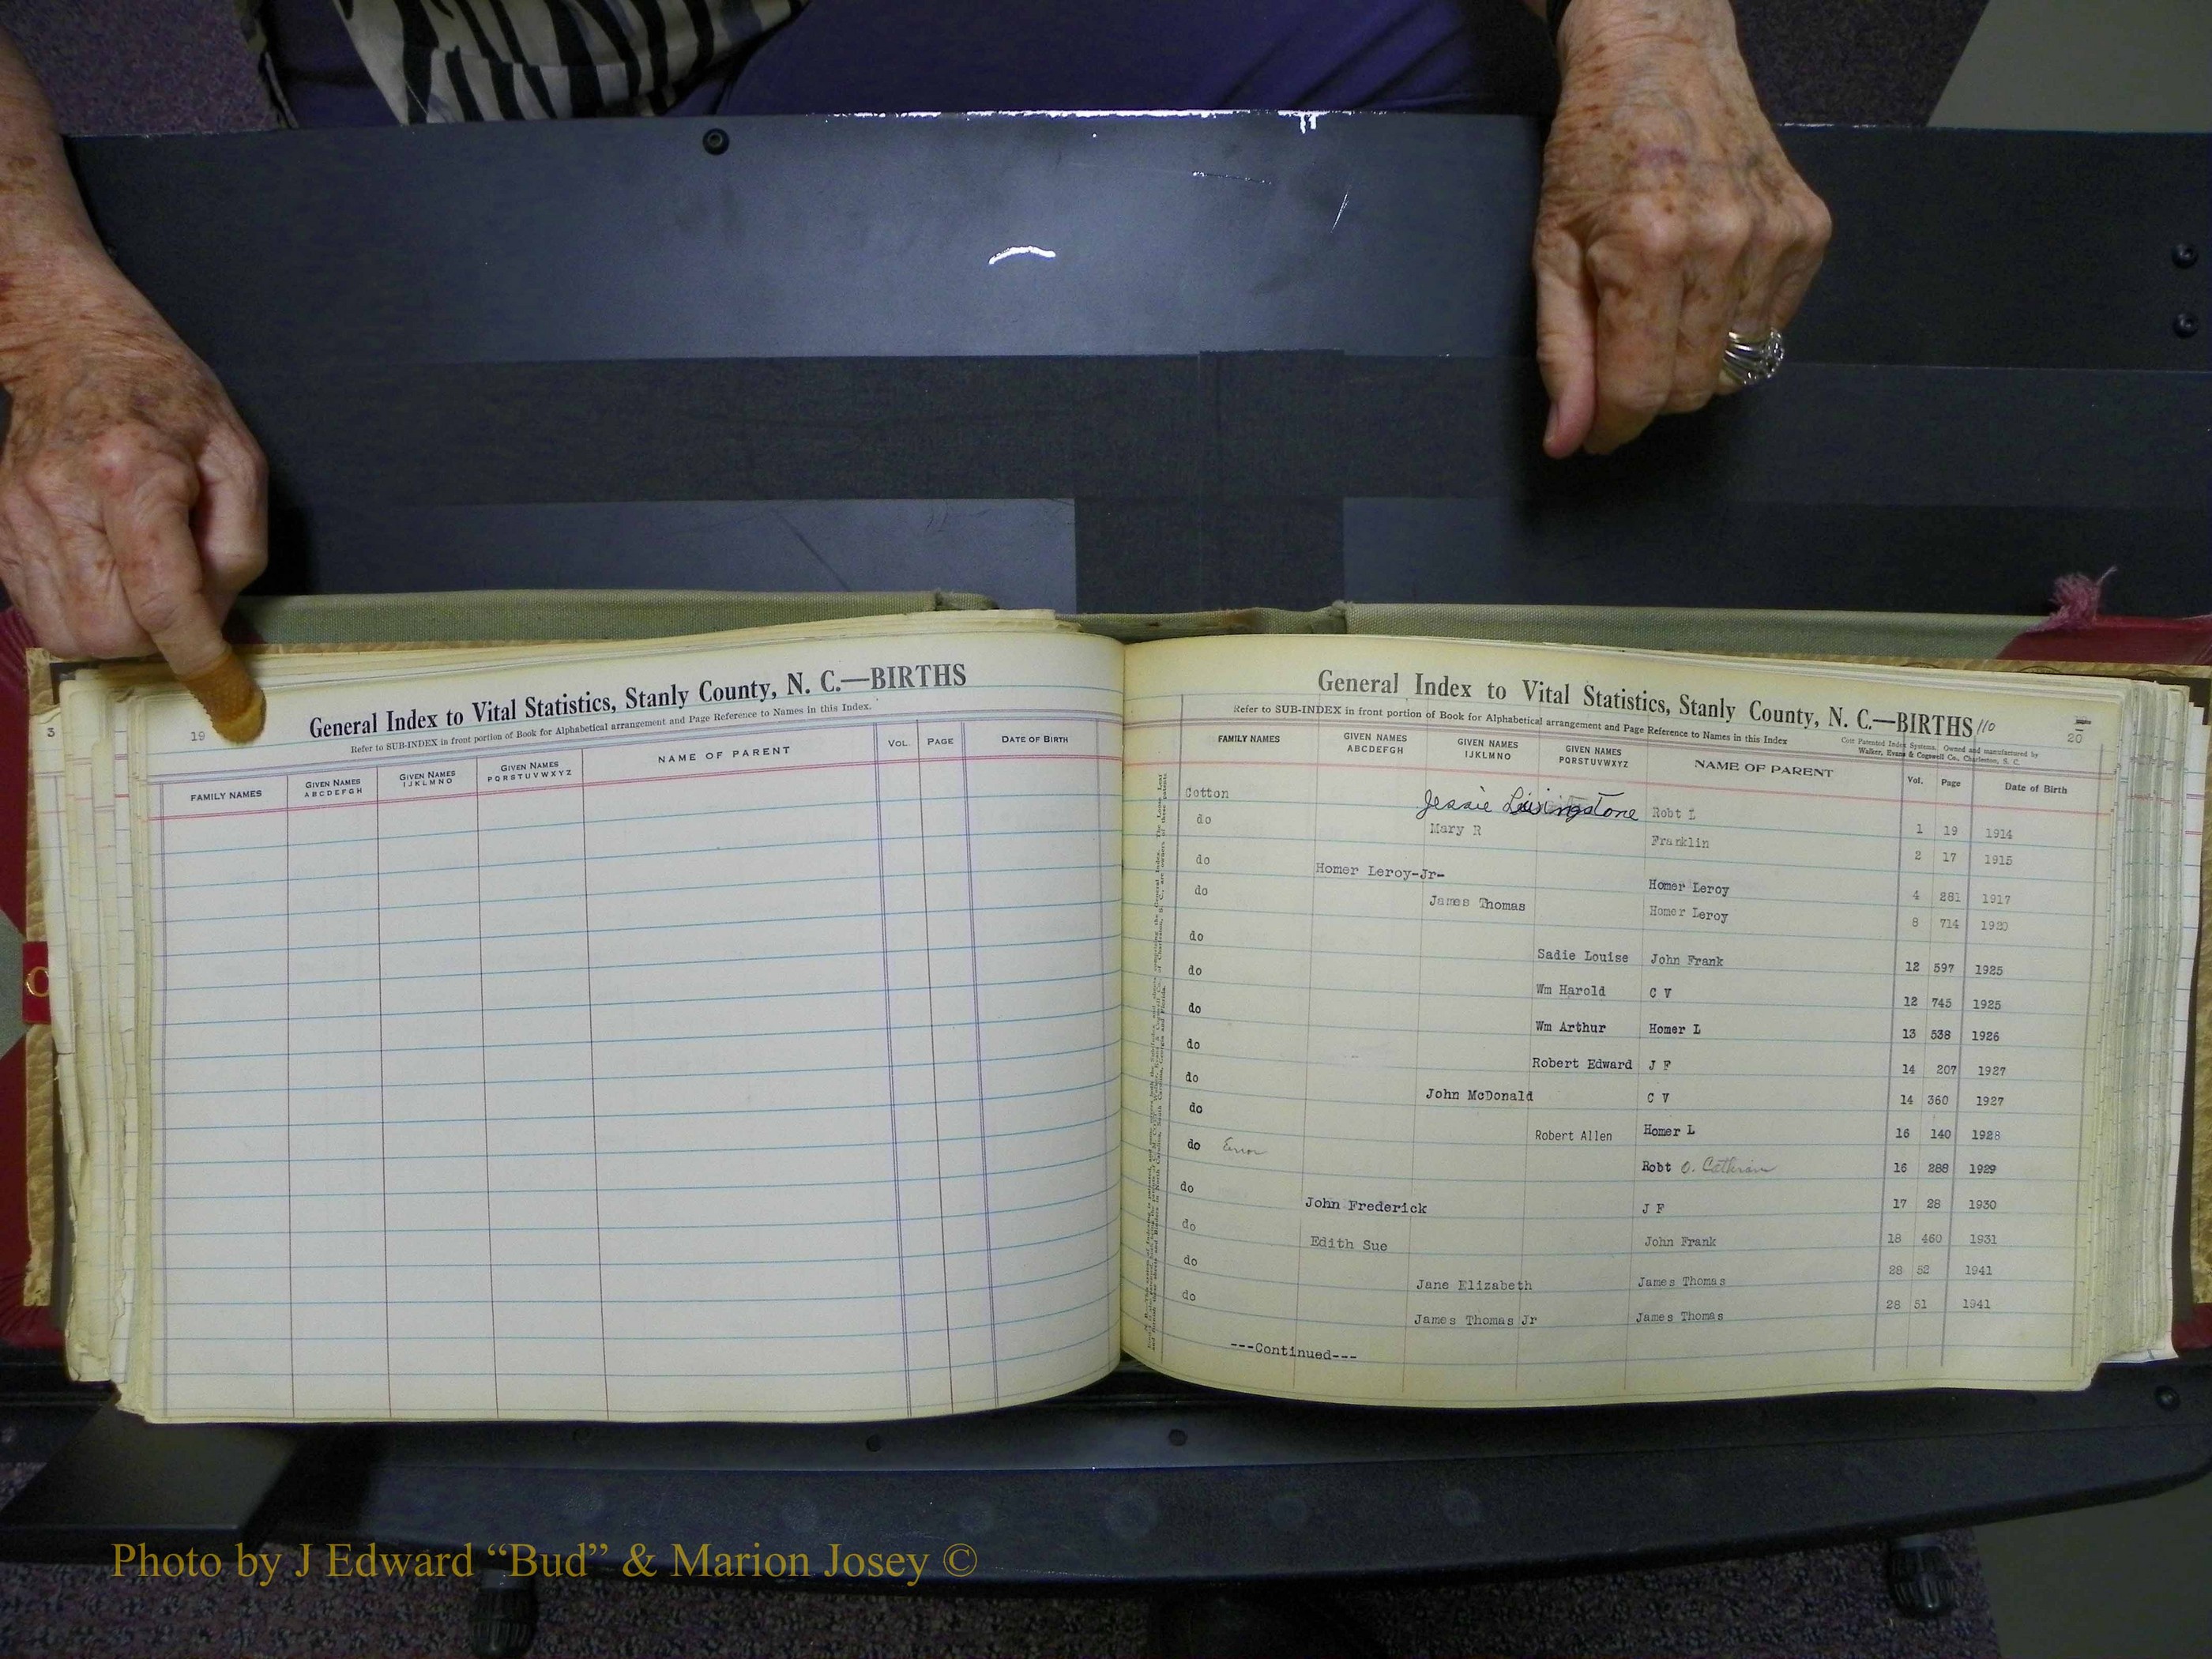 3
19
General Index to Vital Statistics, Stanly County, N. C.—BIRTHS
Refer to SUB-INDEX in front portion of Book for Alphabetical arrangement and Page Reference to Names in this Index.
FAMILY NAMES GIVEN NAMES ABCDEFGH GIVEN NAMES IJKLMNO GIVEN NAMES PQRSTUVWXYZ NAME OF PARENT VOL. PAGE DATE OF BIRTH
General Index to Vital Statistics, Stanly County, N. C.—BIRTHS 110
20
Refer to SUB-INDEX in front portion of Book for Alphabetical arrangement and Page Reference to Names in this Index
Cott Patented Index Systems, Owned and manufactured by
Walker, Evans & Cogswell Co., Charleston, S. C.
FAMILY NAMES GIVEN NAMES ABCDEFGH GIVEN NAMES IJKLMNO GIVEN NAMES PQRSTUVWXYZ NAME OF PARENT Vol. Page Date of Birth
Cotton Jessie Livingstone Robt L 1 19 1914
do Mary R Franklin 2 17 1915
do Homer Leroy-Jr- Homer Leroy 4 281 1917
do James Thomas Homer Leroy 8 714 1920
do Sadie Louise John Frank 12 597 1925
do Wm Harold C V 12 745 1925
do Wm Arthur Homer L 13 538 1926
do Robert Edward J F 14 207 1927
do John McDonald C V 14 360 1927
do Robert Allen Homer L 16 140 1928
do Error Robt O. Cathran 16 288 1929
do John Frederick J F 17 28 1930
do Edith Sue John Frank 18 460 1931
do Jane Elizabeth James Thomas 28 52 1941
do James Thomas Jr James Thomas 28 51 1941
---Continued---
Photo by J Edward “Bud” & Marion Josey ©